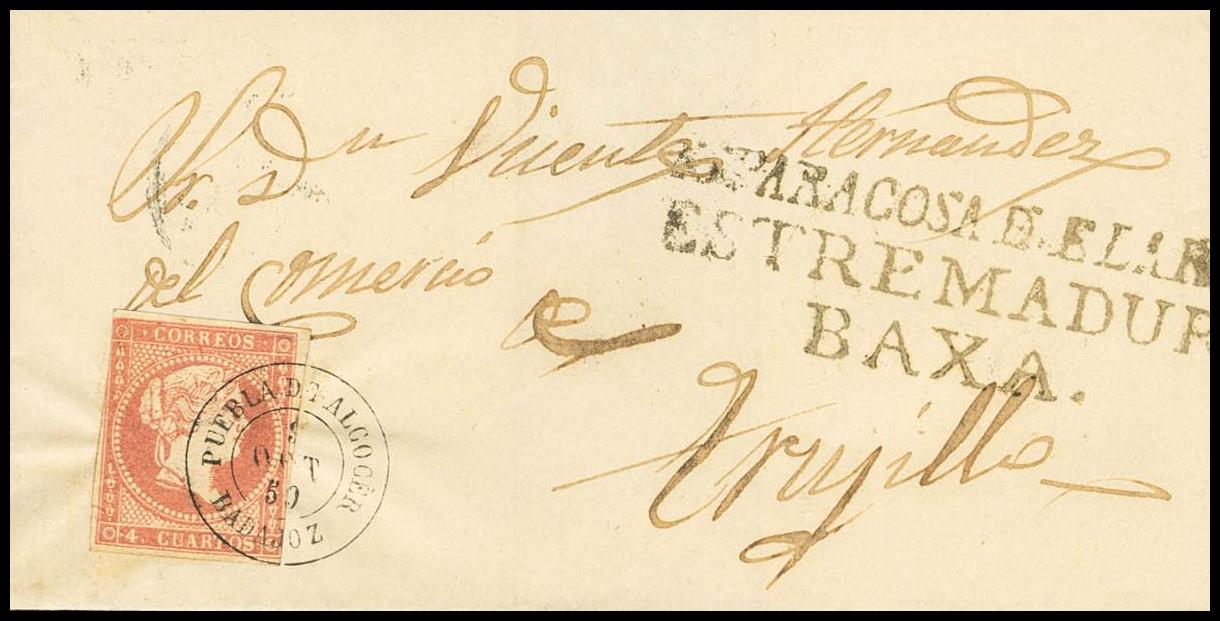 Sr. Dn Vicente Hernandez
del Comercio
ESPARAGOSA D. E LAR
ESTREMADUR
BAXA.
Trujillo
CORREOS
4 CUARTOS
PUEBLA DE ALCOCER
OCT
BADAJOZ